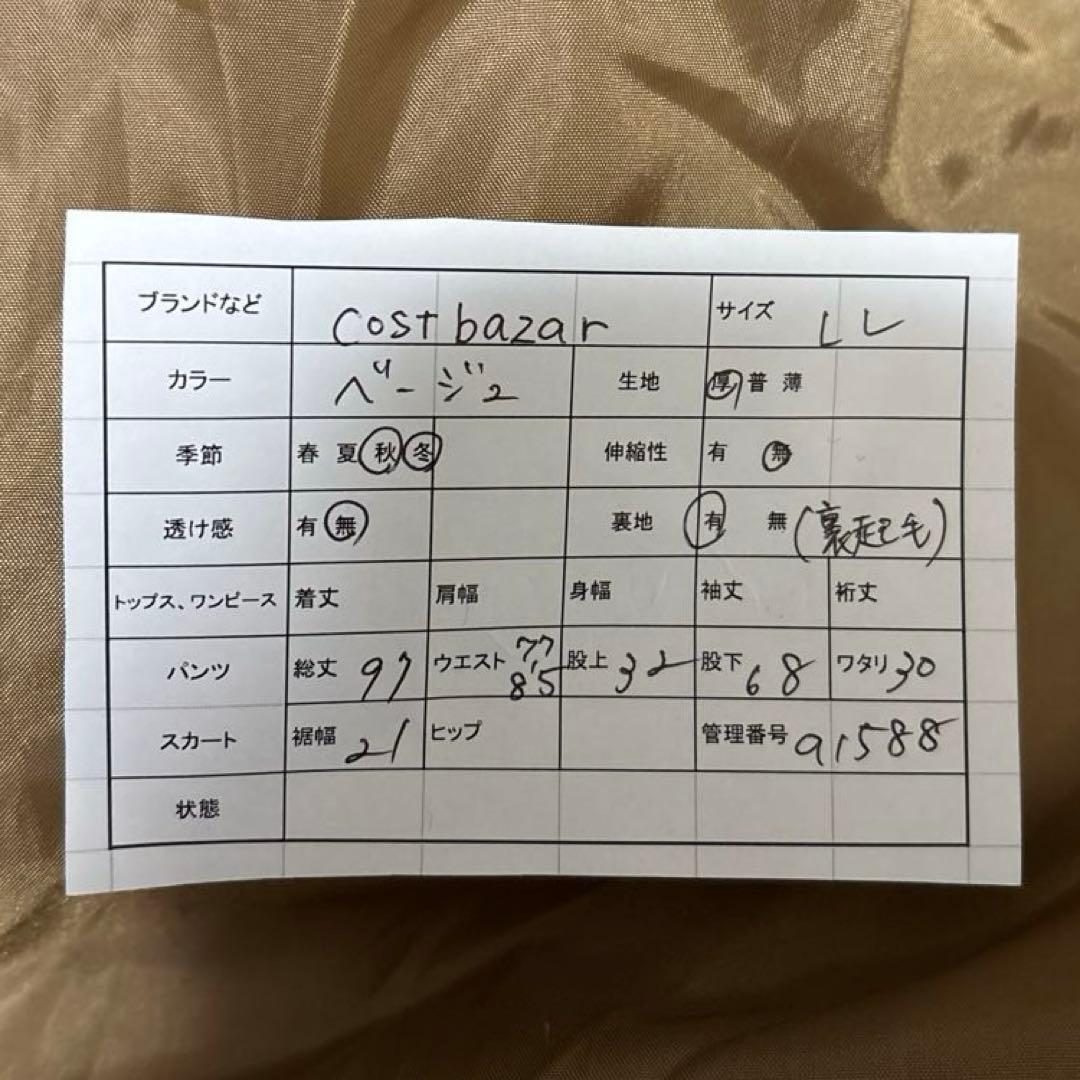 ブランドなど cost bazar サイズ LL
カラー ベージュ 生地 厚 普 薄
季節 春 夏 秋 冬 伸縮性 有 無
透け感 有 無 裏地 有 無 (裏起毛)
トップス、ワンピース 着丈 肩幅 身幅 袖丈 裄丈
パンツ 総丈 97 ウエスト 77 85 股上 32 股下 68 ワタリ 30
スカート 裾幅 21 ヒップ 管理番号 a1588
状態